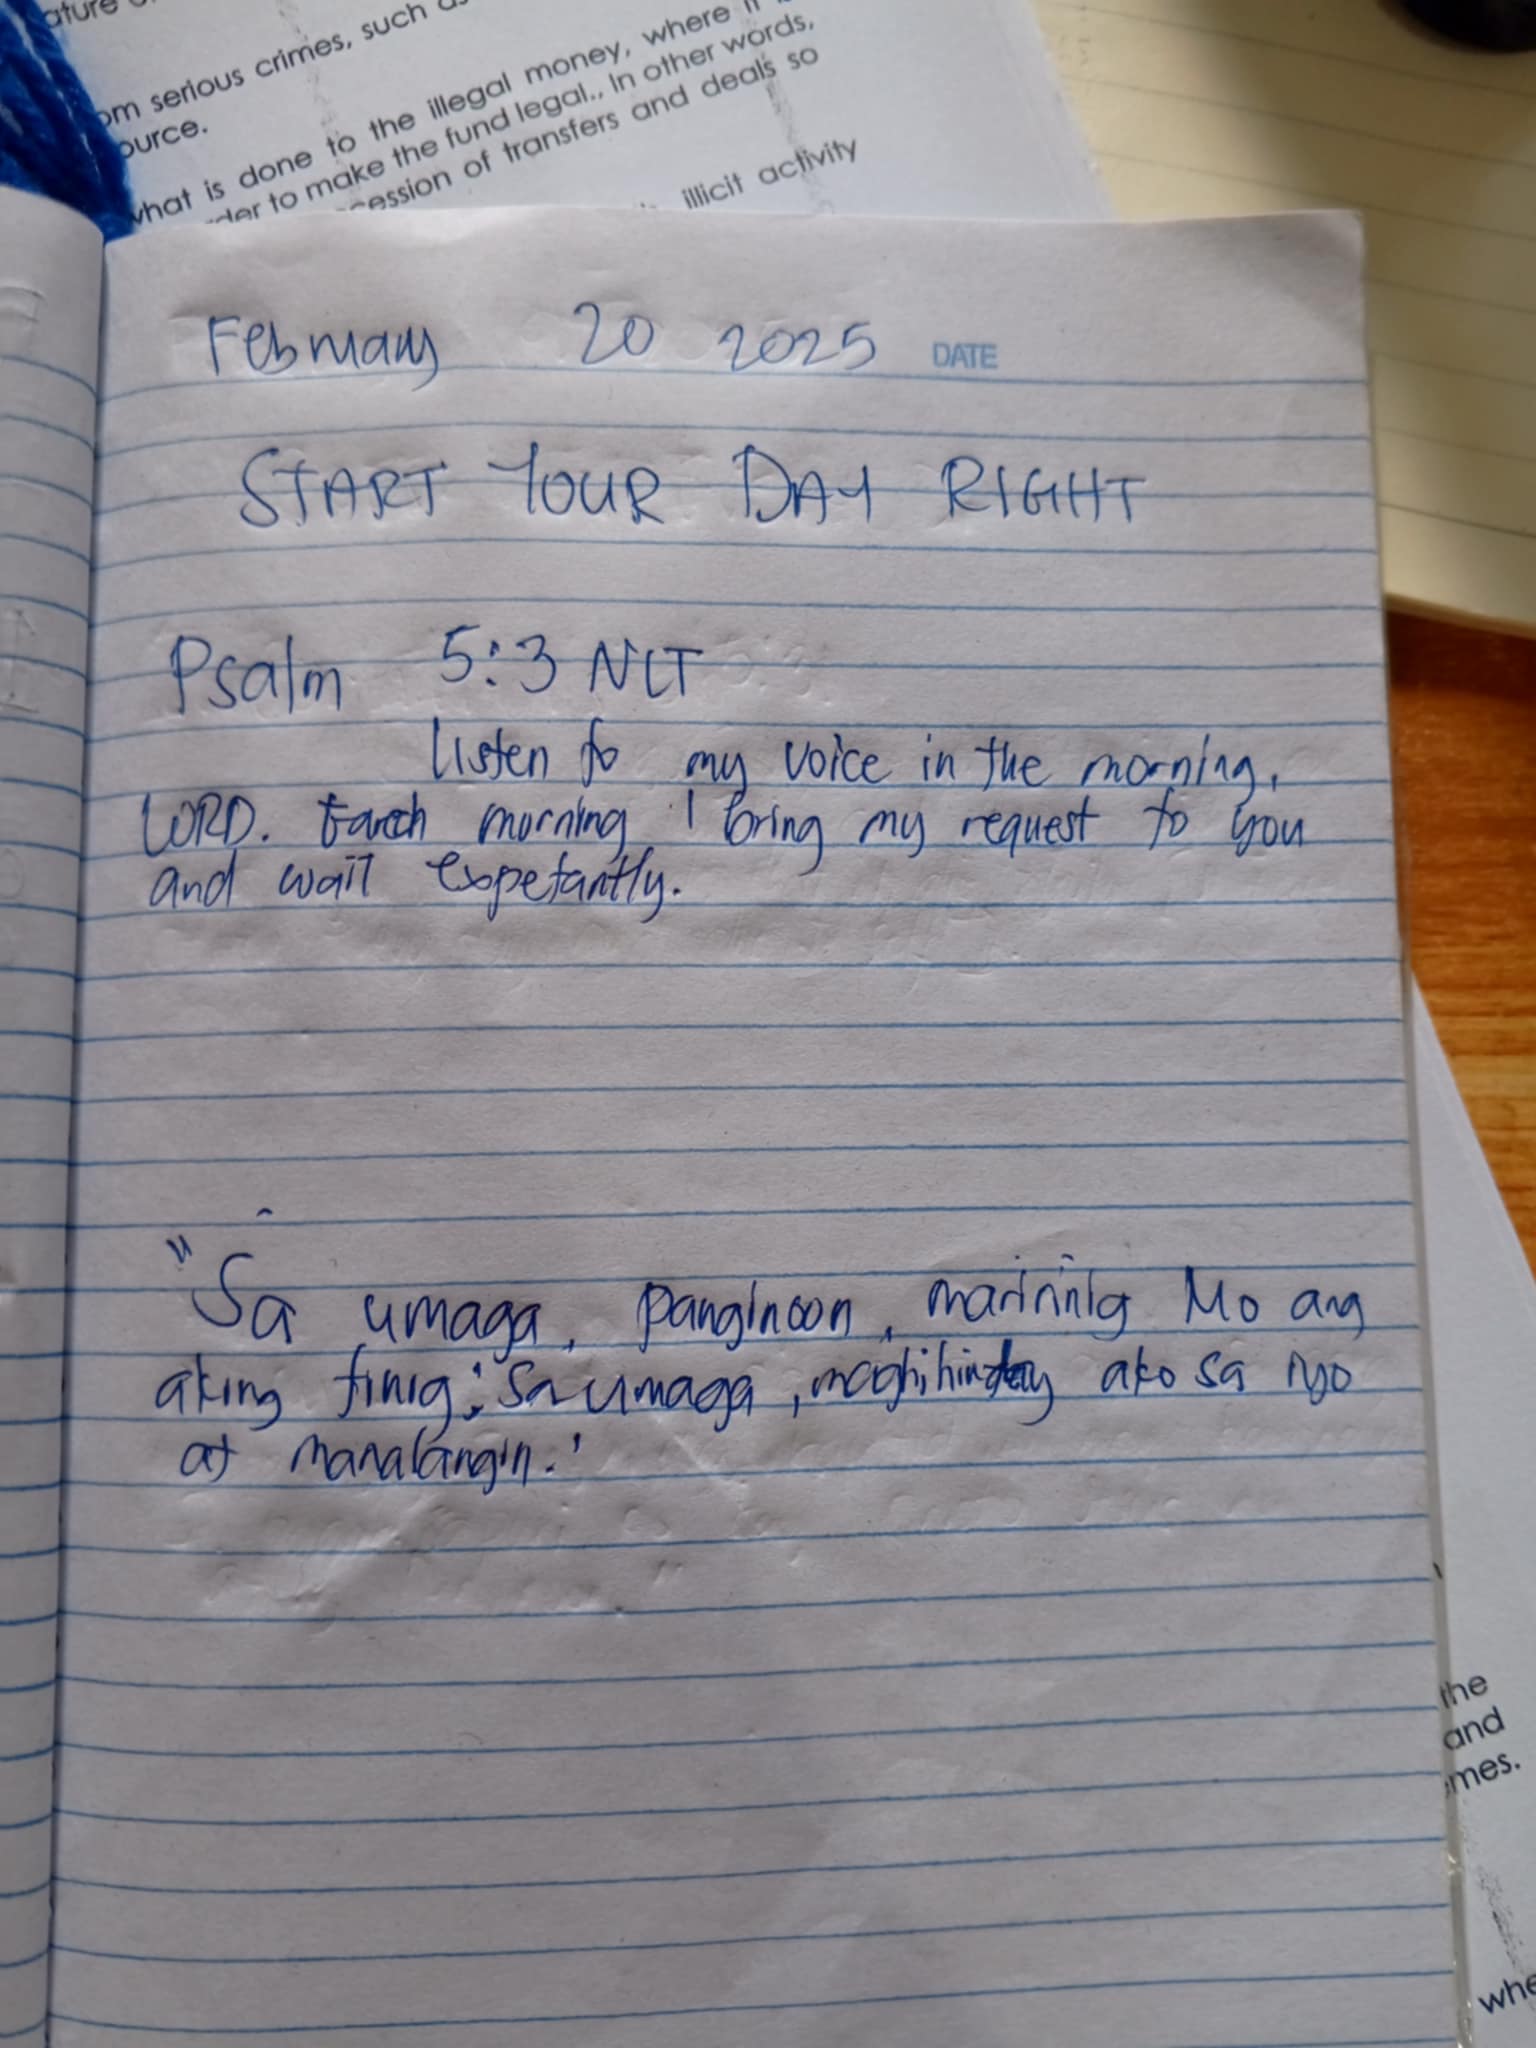 ature
om serious crimes, such as
ource.
what is done to the illegal money, where it
der to make the fund legal., In other words,
cession of transfers and deals so
illicit activity
February 20 2025 DATE
START YOUR DAY RIGHT
Psalm 5:3 NLT
Listen to my voice in the morning,
LORD. Each morning I bring my request to you
and wait expetantly.
"Sa umaga, panginoon, maririnig Mo ang
aking tinig; sa umaga, maghihintay ako sa Iyo
at manalangin."
the
and
mes.
whe